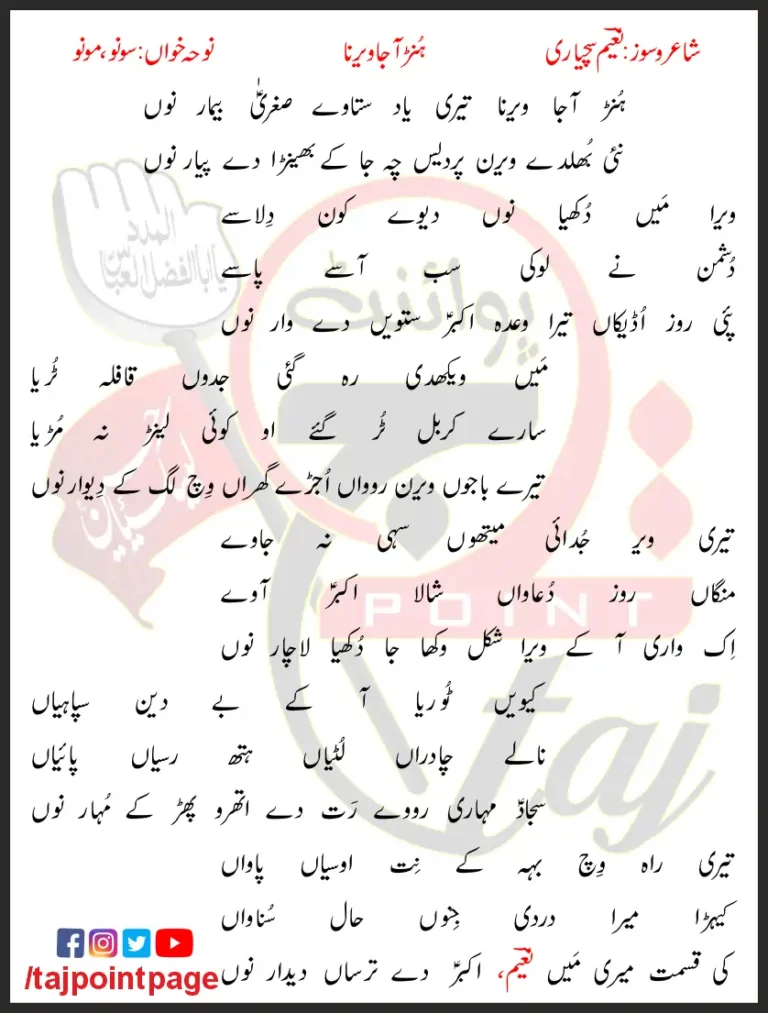 شاعر و سوز: نعیم سچیاری ہُنڑ آ جا ویرنا نوحہ خواں: سونو، مونو
ہُنڑ آجا ویرنا تیری یاد ستاوے صغریٰؑ بیمار نوں
نئی بُھلدے ویرن پردیس چہ جا کے بھینڑا دے پیار نوں
ویرا مَیں دُکھیا نوں دیوے کون دِلاسے
دُشمن نے لوکی سب آسے پاسے
پئی روز اُڈیکاں تیرا وعدہ اکبرؑ ستویں دے وار نوں
مَیں ویکھدی رہ گئی جدوں قافلہ ٹُریا
سارے کربل ٹُر گئے او کوئی لینڑ نہ مُڑیا
تیرے باجوں ویرن روواں اُجڑے گھراں وِچ لگ کے دِیوار نوں
تیری ویر جُدائی میتھوں سہی نہ جاوے
منگاں روز دُعاواں شالا اکبرؑ آوے
اِک واری آ کے ویرا شکل وکھا جا دُکھیا لاچار نوں
کیویں ٹُوریا آ کے بے دین سپاہیاں
نالے چادراں لُٹیاں ہتھ رسیاں پائیاں
سجادؑ مہاری رووے رَت دے اتھرو پھڑ کے مُہار نوں
تیری راہ وِچ بہہ کے نِت اوسیاں پاواں
کیہڑا میرا دردی جِنوں حال سُناواں
کی قسمت میری مَیں نعیم، اکبرؑ دے ترساں دیدار نوں
المدد
یا ابا الفضل العباس
لبیک یا حسین
پوائنٹ
تاج
POINT
taj
/tajpointpage